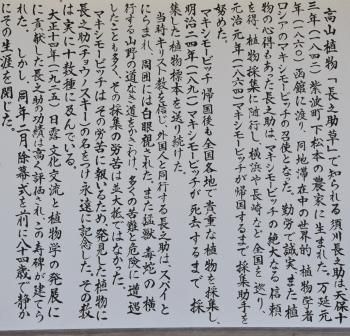 高山植物「長之助草」で知られる須川長之助は天保十
三年（一八四二）紫波町下松本の農家に生まれた。万延元
年（一八六〇）函館に渡り、同地滞在中の世界的植物学者
ロシアのマキシモービッチの召使となった。勤勉で誠実、また植
物の心得もあった長之助は、マキシモービッチの絶大なる信頼
を得、植物採集に随行し、横浜や長崎など全国を巡り、
元治元年（一八六四）マキシモービッチが帰国するまで採集助手を
努めた。
マキシモービッチ帰国後も全国各地で貴重な植物を採集し、
明治二四年（一八九一）マキシモービッチが死去するまで、採
集した植物標本を送り続けた。
当時キリスト教を信じ、外国人と同行する長之助は、スパイと
にらまれ、周囲には白眼視された。また猛獣・毒蛇の横
行する山野の道なき道をかき分け、多くの苦難と危険に遭遇
したことも多く、その採集の労苦は並大抵ではなかった。
マキシモービッチはその労苦に報いるため、発見した植物に
長之助（チョウノスキー）の名をつけ永遠に記念した。その数
は実に十数種に及んでいる。
大正十四年（一九二五）日露文化交流と植物学の発展に
に貢献した長之助の功績は高く評価され、この寿碑が建てら
れた。しかし、同年二月除幕式を前に八十四歳で静か
にその生涯を閉じた。